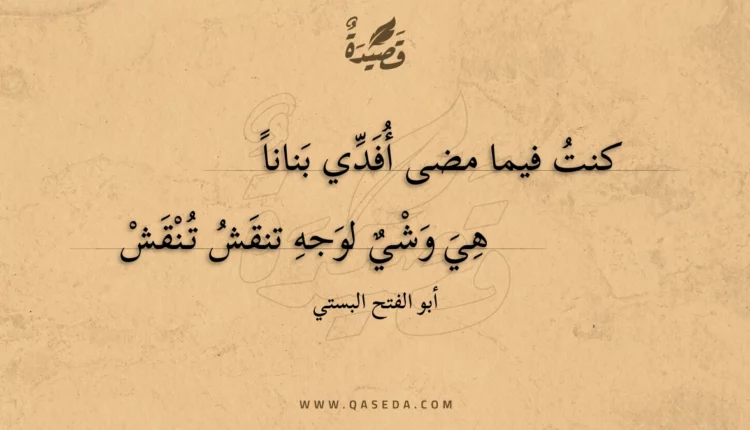 قَصِيدَةٌ
كنتُ فيما مضى أُفَدِّي بَناناً
هِيَ وَشْيٌ لوَجهِ تنقَشُ تُنْقَشْ
أبو الفتح البستي
WWW.QASEDA.COM